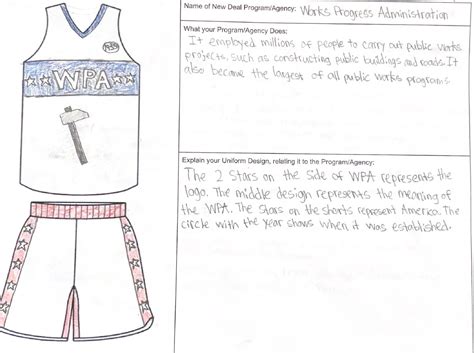 Name of New Deal Program/Agency: Works Progress Administration
What your Program/Agency Does:
It employed millions of people to carry out public works
projects, such as constructing public buildings and roads. It
also became the largest of all public works programs
WPA
Explain your Uniform Design, relating it to the Program/Agency:
The 2 stars on the side of WPA represents the
logo. The middle design represents the meaning of
the WPA. The stars on the shorts represent America. The
circle with the year shows when it was established.